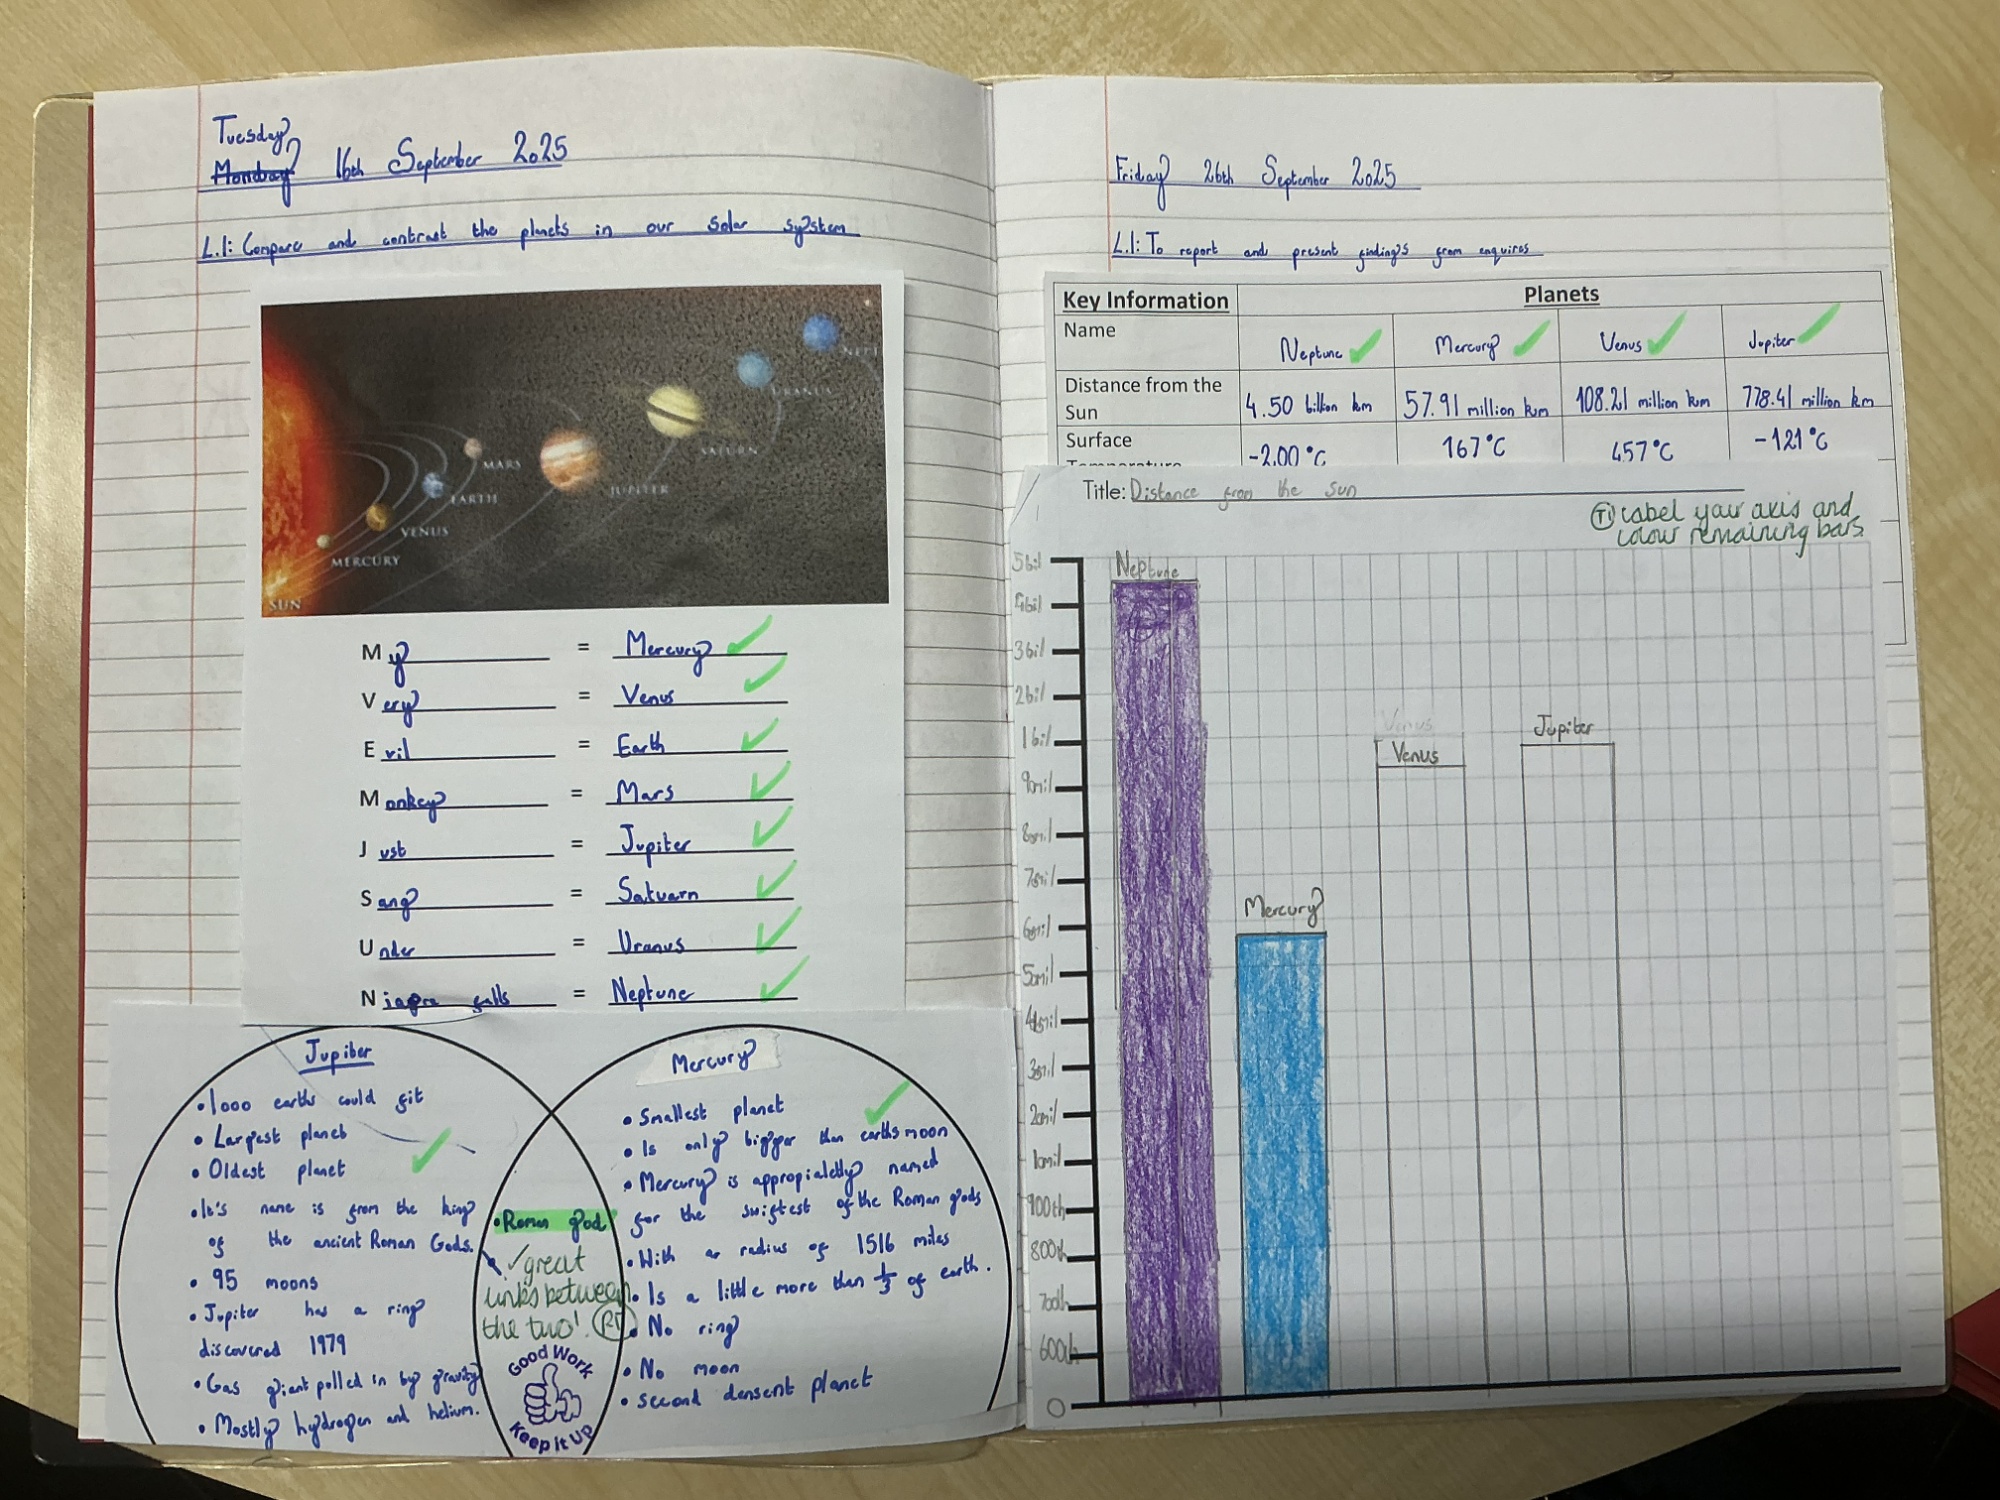 Tuesday
Monday 16th September 2025
L.I: Compare and contrast the planets in our solar system
NEPT
URANUS
SATURN
JUPITER
MARS
EARTH
VENUS
MERCURY
SUN
My = Mercury
Very = Venus
Evil = Earth
Monkey = Mars
Just = Jupiter
Sang = Satuarn
Under = Uranus
Niagra falls = Neptune
Jupiter
• 1000 earths could fit
• Largest planet
• Oldest planet
• It's name is from the king
of the ancient Roman Gods.
• 95 moons
• Jupiter has a ring
discovered 1979
• Gas giant polled in by gravity
• Mostly hydrogen and helium.
• Roman god
✓ great
links between
the two!
Good Work
Keep it Up
Mercury
• Smallest planet
• Is only bigger than earths moon
• Mercury is appropialetly named
for the swiftest of the Roman gods
• With a radius of 1516 miles
• Is a little more than 1/3 of earth.
• No ring
• No moon
• second densent planet
Friday 26th September 2025
L.I: To report and present finding's from enquires
Key Information Planets
Name Neptune Mercury Venus Jupiter
Distance from the
Sun 4.50 billion km 57.91 million km 108.21 million km 778.41 million km
Surface
Temperature -200°C 167°C 457°C -121°C
Title: Distance from the sun
TI Label your axis and
colour remaining bars.
5bil
4bil
3bil
2bil
1bil
90mil
80mil
70mil
60mil
50mil
40mil
30mil
20mil
10mil
900th
800th
700th
600th
0
Neptune
Mercury
Venus
Venus
Jupiter